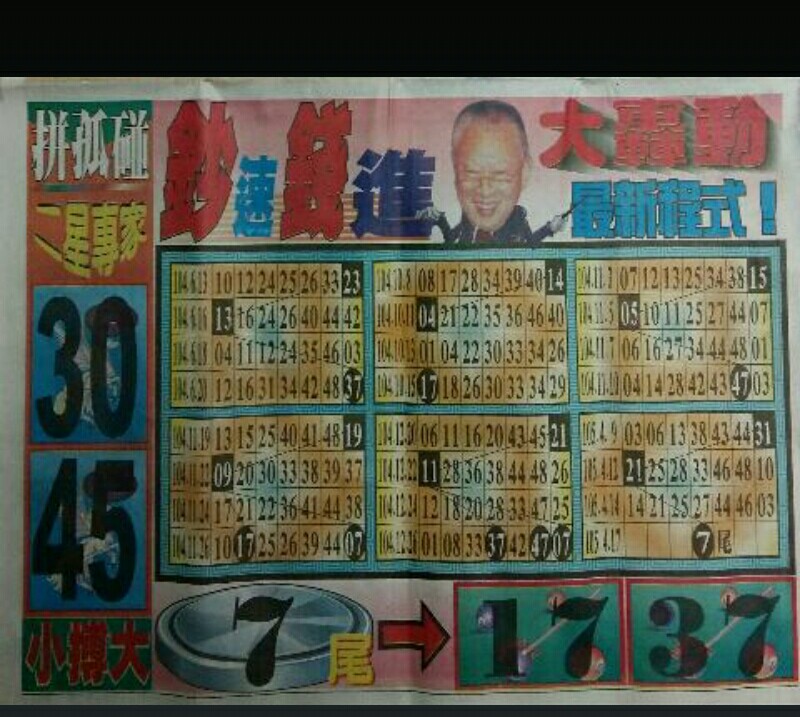 拼孤碰
二星專家
30
45
小搏大
鈔速錢進
大轟動
最新程式!
104.6.13 10 12 24 25 26 33 23
104.6.16 13 16 24 26 40 44 42
104.6.18 04 11 12 24 35 46 03
104.6.20 12 16 31 34 42 48 37
104.10.8 08 17 28 34 39 40 14
104.10.11 04 21 22 35 36 46 40
104.10.13 01 04 22 30 33 34 26
104.10.15 17 18 26 30 33 34 29
104.11.3 07 12 13 25 34 38 15
104.11.5 05 10 11 25 27 44 07
104.11.7 06 16 27 34 44 48 01
104.11.10 04 14 28 42 43 47 03
104.11.19 13 15 25 40 41 48 19
104.11.22 09 20 30 33 38 39 37
104.11.24 17 21 22 36 41 44 38
104.11.26 10 17 25 26 39 44 07
104.12.20 06 11 16 20 43 45 21
104.12.22 11 28 36 38 44 48 26
104.12.24 12 18 20 28 33 47 25
104.12.26 01 08 33 37 42 47 07
105.4.9 03 06 13 38 43 44 31
105.4.12 21 25 28 33 46 48 10
105.4.14 14 21 25 27 44 46 03
105.4.17 7尾
7尾 → 17 37